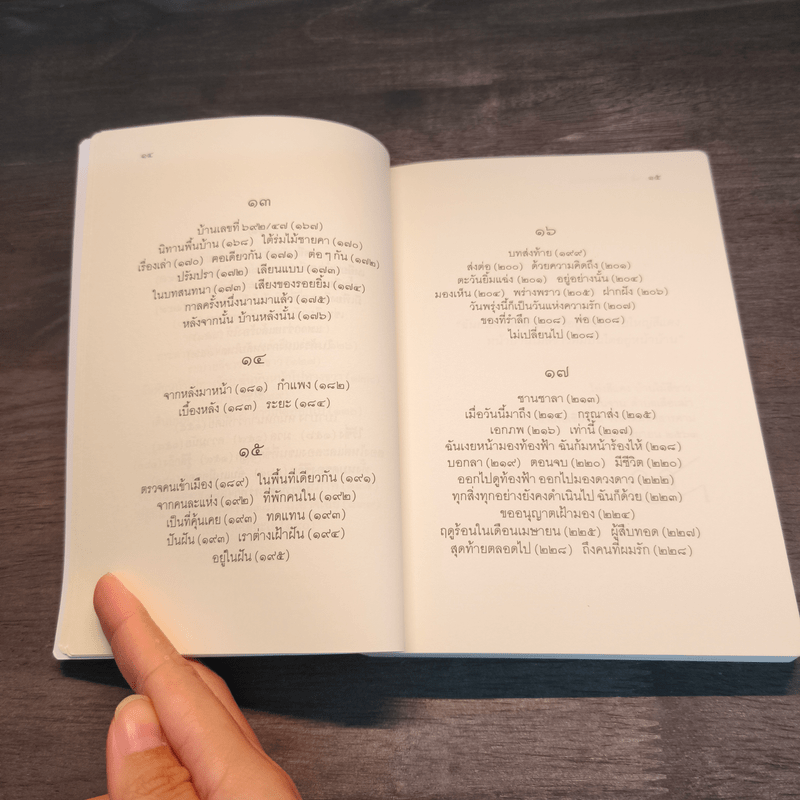 ๑๔
๑๓
บ้านเลขที่ ๖๙๒/๔๗ (๑๖๗)
นิทานพื้นบ้าน (๑๖๘) ใต้ร่มไม้ชายคา (๑๗๐)
เรื่องเล่า (๑๗๐) คอเดียวกัน (๑๗๑) ต่อๆ กัน (๑๗๒)
ปรัมปรา (๑๗๒) เลียนแบบ (๑๗๓)
ในบทสนทนา (๑๗๓) เสียงของรอยยิ้ม (๑๗๔)
กาลครั้งหนึ่งนานมาแล้ว (๑๗๕)
หลังจากนั้น บ้านหลังนั้น (๑๗๖)
๑๔
จากหลังมาหน้า (๑๘๑) กำแพง (๑๘๒)
เบื้องหลัง (๑๘๓) ระยะ (๑๘๔)
๑๕
ตรวจคนเข้าเมือง (๑๘๙) ในพื้นที่เดียวกัน (๑๙๑)
จากคนละแห่ง (๑๙๒) ที่พักคนใน (๑๙๒)
เป็นที่คุ้นเคย (๑๙๓) ทดแทน (๑๙๓)
ปันฝัน (๑๙๓) เราต่างเฝ้าฝัน (๑๙๔)
อยู่ในฝัน (๑๙๕)
๑๕
๑๖
บทส่งท้าย (๑๙๙)
ส่งต่อ (๒๐๐) ด้วยความคิดถึง (๒๐๑)
ตะวันยิ้มแฉ่ง (๒๐๑) อยู่อย่างนั้น (๒๐๔)
มองเห็น (๒๐๔) พร่างพราว (๒๐๕) ฝากฝัง (๒๐๖)
วันพรุ่งนี้ก็เป็นวันแห่งความรัก (๒๐๗)
ของที่รำลึก (๒๐๘) พ่อ (๒๐๘)
ไม่เปลี่ยนไป (๒๐๘)
๑๗
ชานชาลา (๒๑๓)
เมื่อวันนี้มาถึง (๒๑๔) กรุณาส่ง (๒๑๕)
เอกภพ (๒๑๖) เท่านี้ (๒๑๗)
ฉันเงยหน้ามองท้องฟ้า ฉันก้มหน้าร้องไห้ (๒๑๘)
บอกลา (๒๑๙) ตอนจบ (๒๒๐) มีชีวิต (๒๒๐)
ออกไปดูท้องฟ้า ออกไปมองดวงดาว (๒๒๒)
ทุกสิ่งทุกอย่างยังคงดำเนินไป ฉันก็ด้วย (๒๒๓)
ขออนุญาตเฝ้ามอง (๒๒๔)
ฤดูร้อนในเดือนเมษายน (๒๒๕) ผู้สืบทอด (๒๒๗)
สุดท้ายตลอดไป (๒๒๘) ถึงคนที่ผมรัก (๒๒๘)